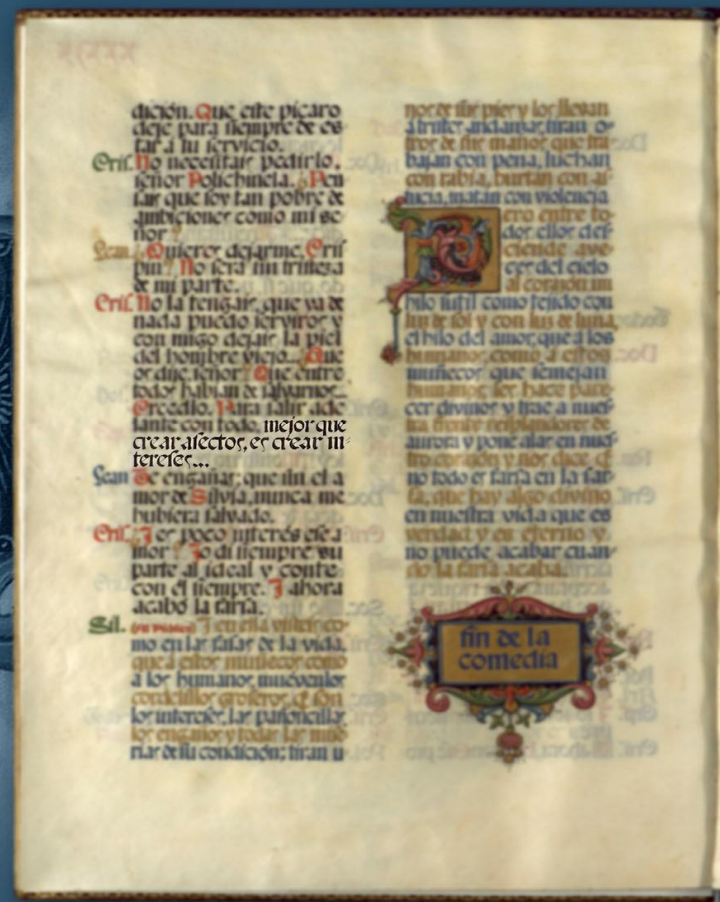 dición. Que este pícaro
deje para siempre de es-
tar a tu servicio.
Cris. No necesitáis pedirlo,
señor Polichinela. Pen
sáis que soy tan pobre de
ambiciones como mi se-
ñor?
Lean. Quieres dejarme, Cris
pín? No será sin tristeza
de mi parte.
Cris. No la tengáis, que ya de
nada puedo serviros y
con migo dejáis la piel
del hombre viejo... Qué
os dije, señor? Que entre
todos habían de salvarnos...
Creedlo. Para salir ade
lante con todo, mejor que
crear afectos, es crear in-
tereses...
Lean Te engañas; que sin el a
mor de Silvia, nunca me
hubiera salvado.
Cris. Y es poco interés ese a
mor? Yo di siempre su
parte al ideal y conté
con él siempre. Y ahora
acabó la farsa.
Sil. Y en ella visteis co-
mo en las farsas de la vida,
que a estos muñecos como
a los humanos, muévenlos
cordelillos groseros, q. son
los intereses, las pasioncillas,
los engaños y todas las mise
rias de su condición; tiran u
nos de sus pies y los llevan
a tristes andanzas; tiran o-
tros de sus manos que tra
bajan con pena, luchan
con rabia, hurtan con as-
tucia, matan con violencia
Pero entre to-
dos ellos des-
ciende a ve-
ces del cielo
al corazón un
hilo sutil como tejido con
luz de sol y con luz de luna,
el hilo del amor, que a los
humanos, como a estos
muñecos que semejan
humanos, les hace pare-
cer divinos y trae a nues-
tra frente resplandores de
aurora y pone alas en nues-
tro corazón y nos dice que
no todo es farsa en la far-
sa, que hay algo divino
en nuestra vida que es
verdad y es eterno y
no puede acabar cuan-
do la farsa acaba.
fin de la
comedia